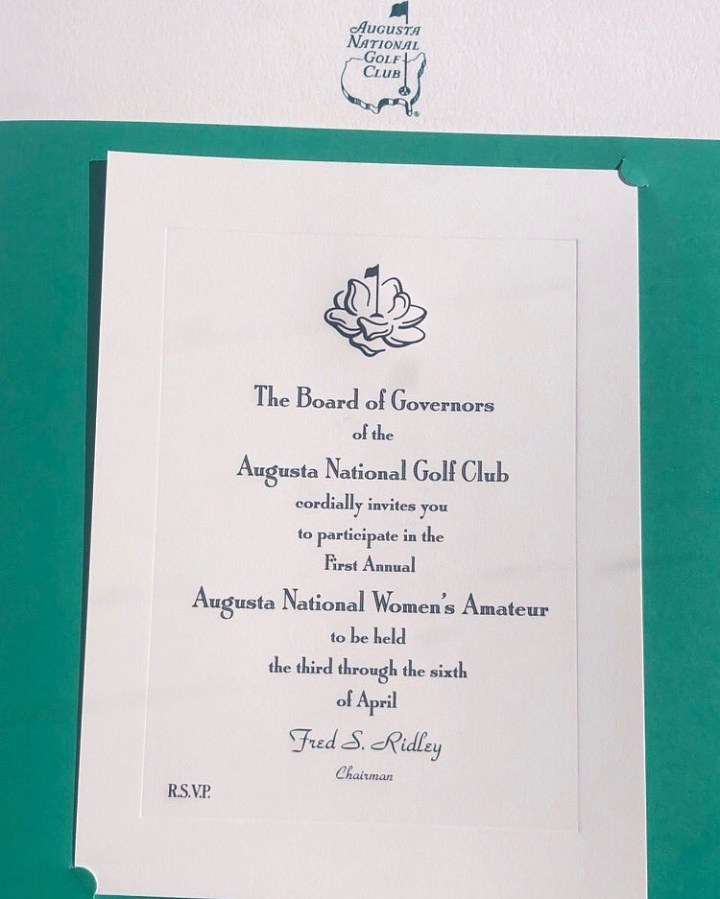 Augusta
National
Golf
Club
The Board of Governors
of the
Augusta National Golf Club
cordially invites you
to participate in the
First Annual
Augusta National Women's Amateur
to be held
the third through the sixth
of April
Fred S. Ridley
Chairman
R.S.V.P.